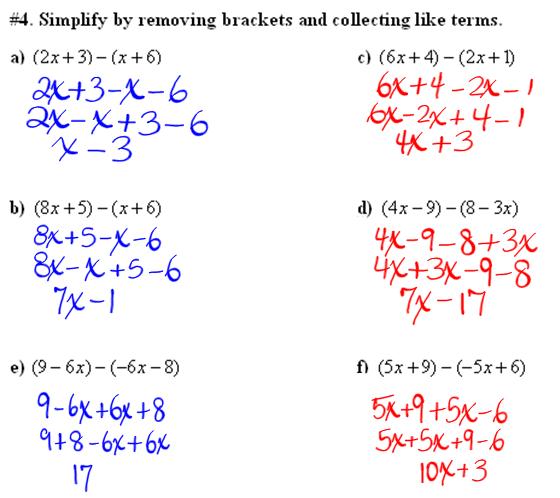 #4. Simplify by removing brackets and collecting like terms.
a) (2x+3)–(x+6)
2x+3-x-6
2x-x+3-6
x-3
c) (6x+4)–(2x+1)
6x+4-2x-1
6x-2x+4-1
4x+3
b) (8x+5)–(x+6)
8x+5-x-6
8x-x+5-6
7x-1
d) (4x–9)–(8–3x)
4x-9-8+3x
4x+3x-9-8
7x-17
e) (9–6x)–(–6x–8)
9-6x+6x+8
9+8-6x+6x
17
f) (5x+9)–(–5x+6)
5x+9+5x-6
5x+5x+9-6
10x+3